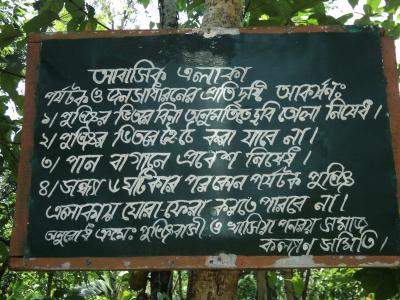 আবাসিক এলাকা
পর্যটক ও জনসাধারনের প্রতি দৃষ্টি আকর্ষণঃ
১। পুঞ্জির ভিতরে বিনা অনুমতিতে ছবি তোলা নিষেধ।
২। পুঞ্জির ভিতরে হৈ চৈ করা যাবে না।
৩। পান বাগানে প্রবেশ নিষেধ।
৪। সন্ধ্যা ৬ ঘটিকার পর কোন পর্যটক পুঞ্জি
এলাকায় ঘোরা ফেরা করতে পারবে না।
অনুরোধ ক্রমেঃ পুঞ্জিবাসী ও খাসিয়া সমাজ
কল্যাণ সমিতি।